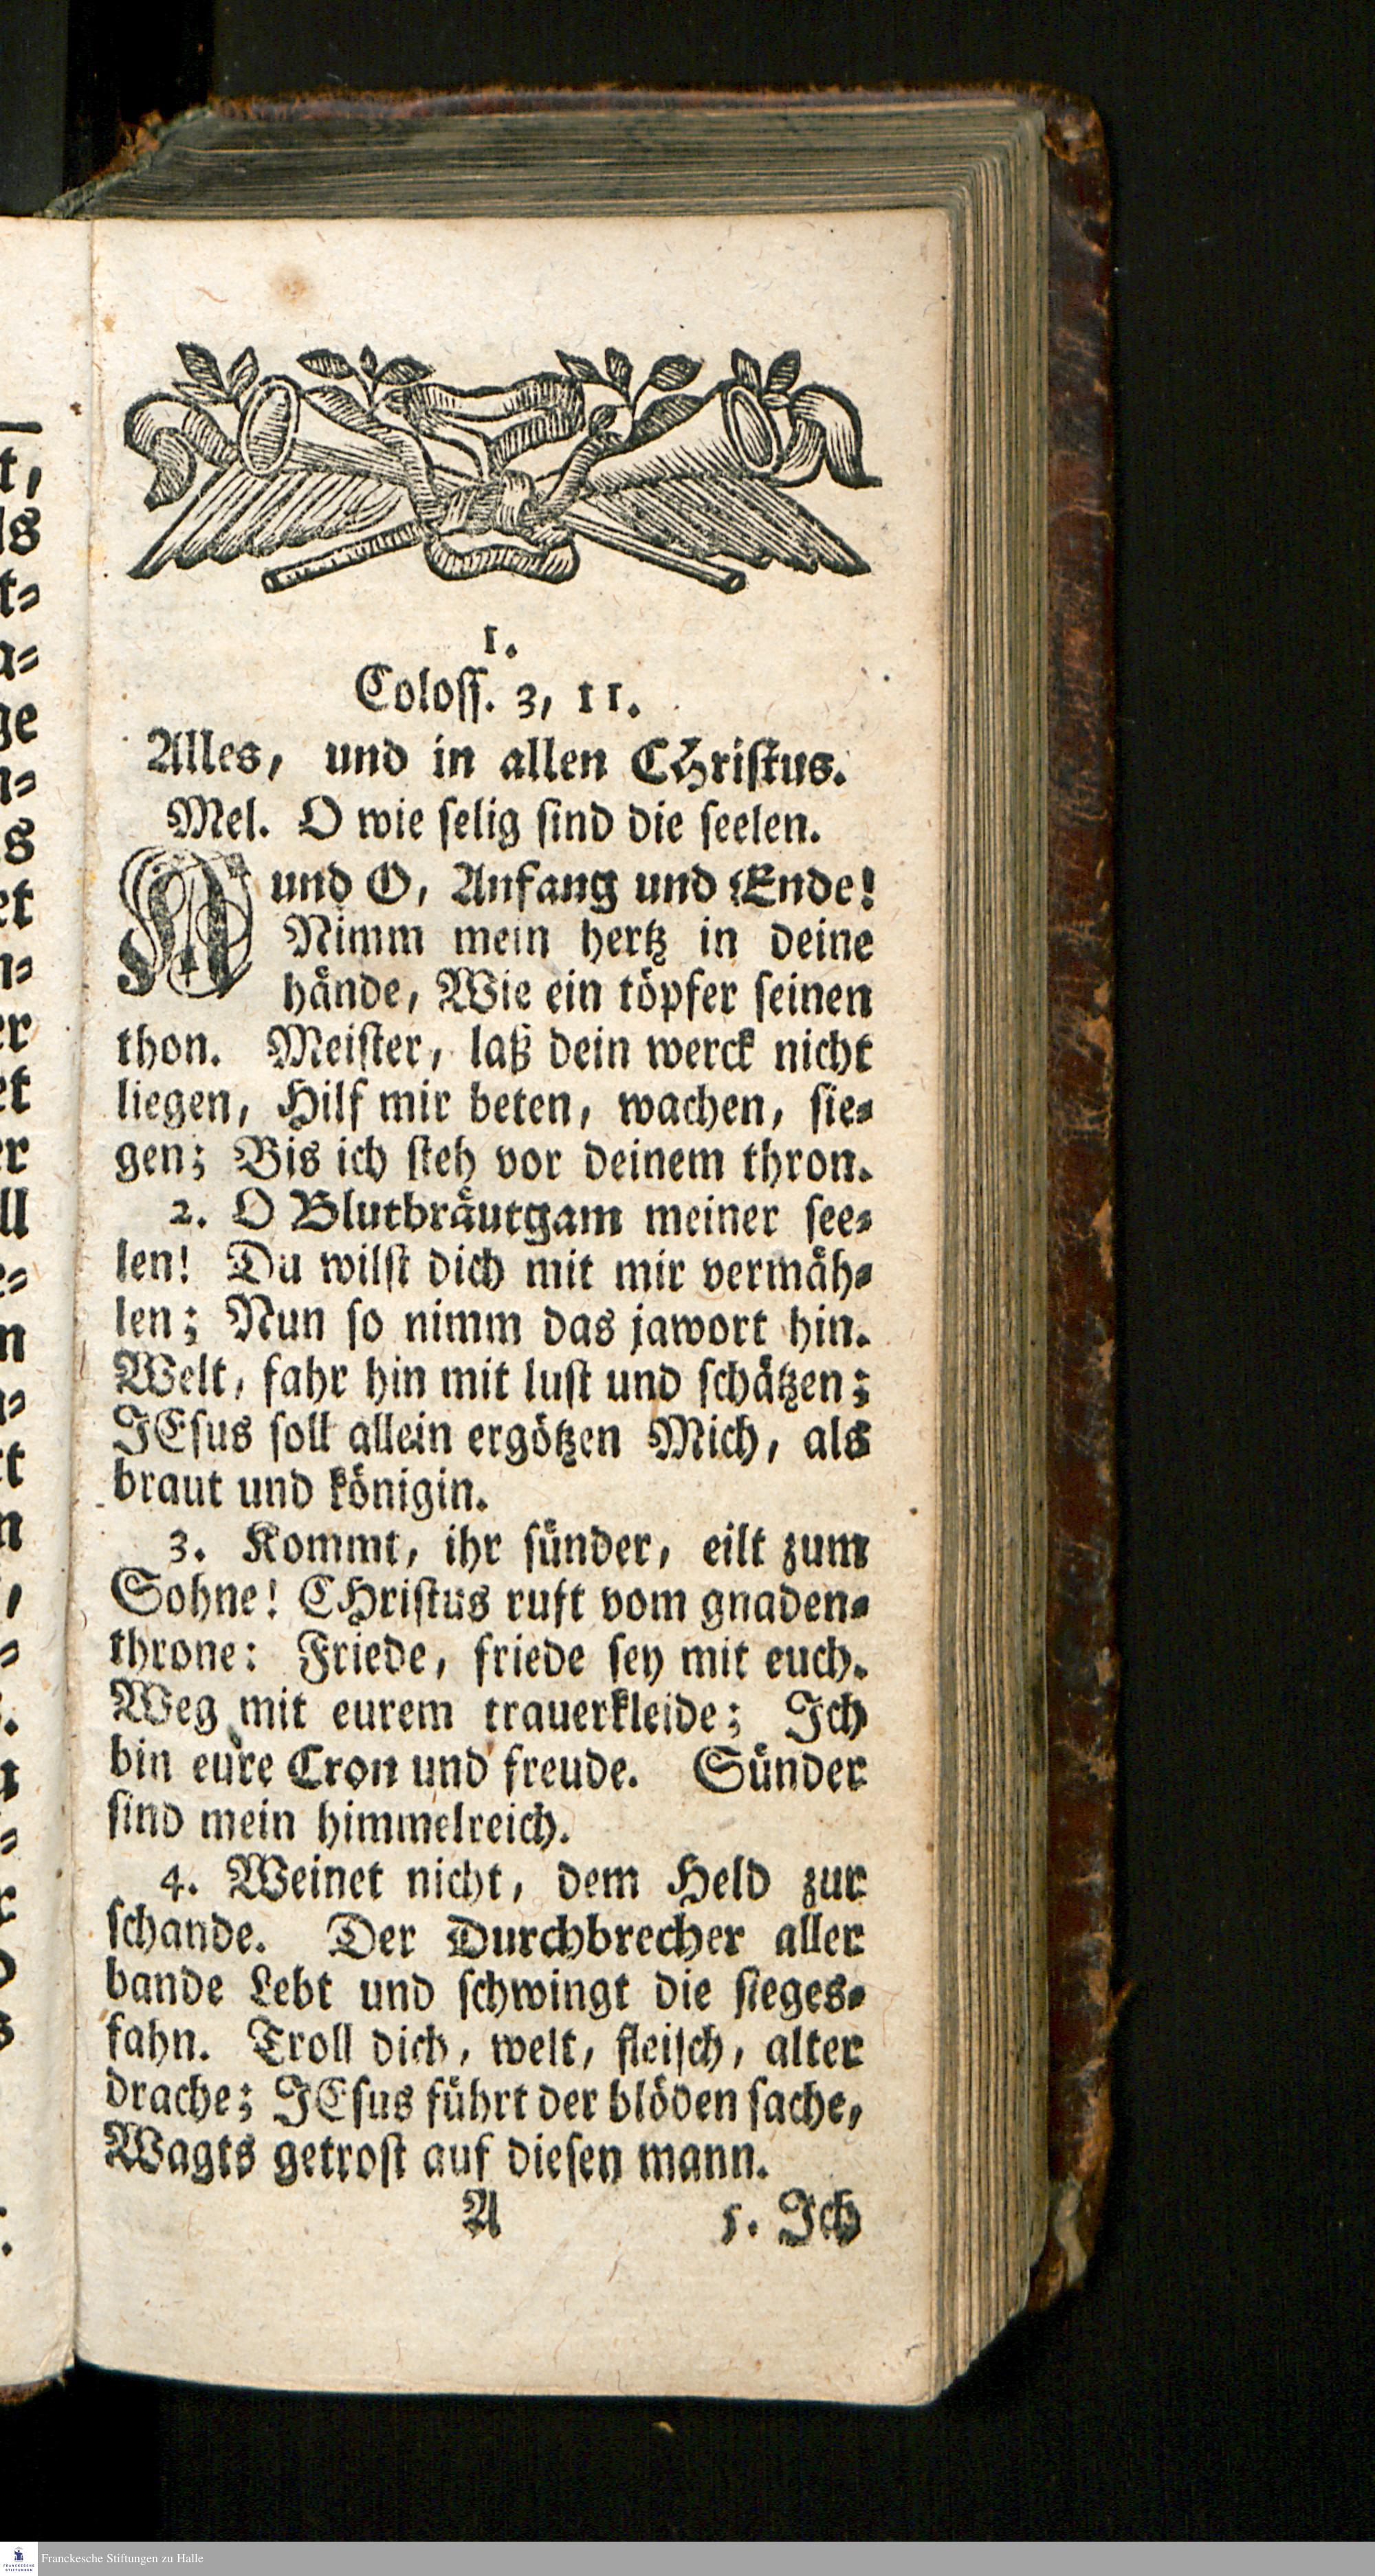 1.
Coloss. 3, 11.
Alles, und in allen CHristus.
Mel. O wie selig sind die seelen.
A und O, Anfang und Ende!
Nimm mein hertz in deine
hände, Wie ein töpfer seinen
thon. Meister, laß dein werck nicht
liegen, Hilf mir beten, wachen, sie-
gen; Bis ich steh vor deinem thron.
2. O Blutbräutgam meiner see-
len! Du wilst dich mit mir vermäh-
len; Nun so nimm das jawort hin.
Welt, fahr hin mit lust und schätzen;
JEsus soll allein ergötzen Mich, als
braut und königin.
3. Kommt, ihr sünder, eilt zum
Sohne! CHristus ruft vom gnaden-
throne: Friede, friede sey mit euch.
Weg mit eurem trauerkleide; Ich
bin eure Cron und freude. Sünder
sind mein himmelreich.
4. Weinet nicht, dem Held zur
schande. Der Durchbrecher aller
bande Lebt und schwingt die sieges-
fahn. Troll dich, welt, fleisch, alter
drache; JEsus führt der blöden sache,
Wagts getrost auf diesen mann.
A 5. Ich
Franckesche Stiftungen zu Halle